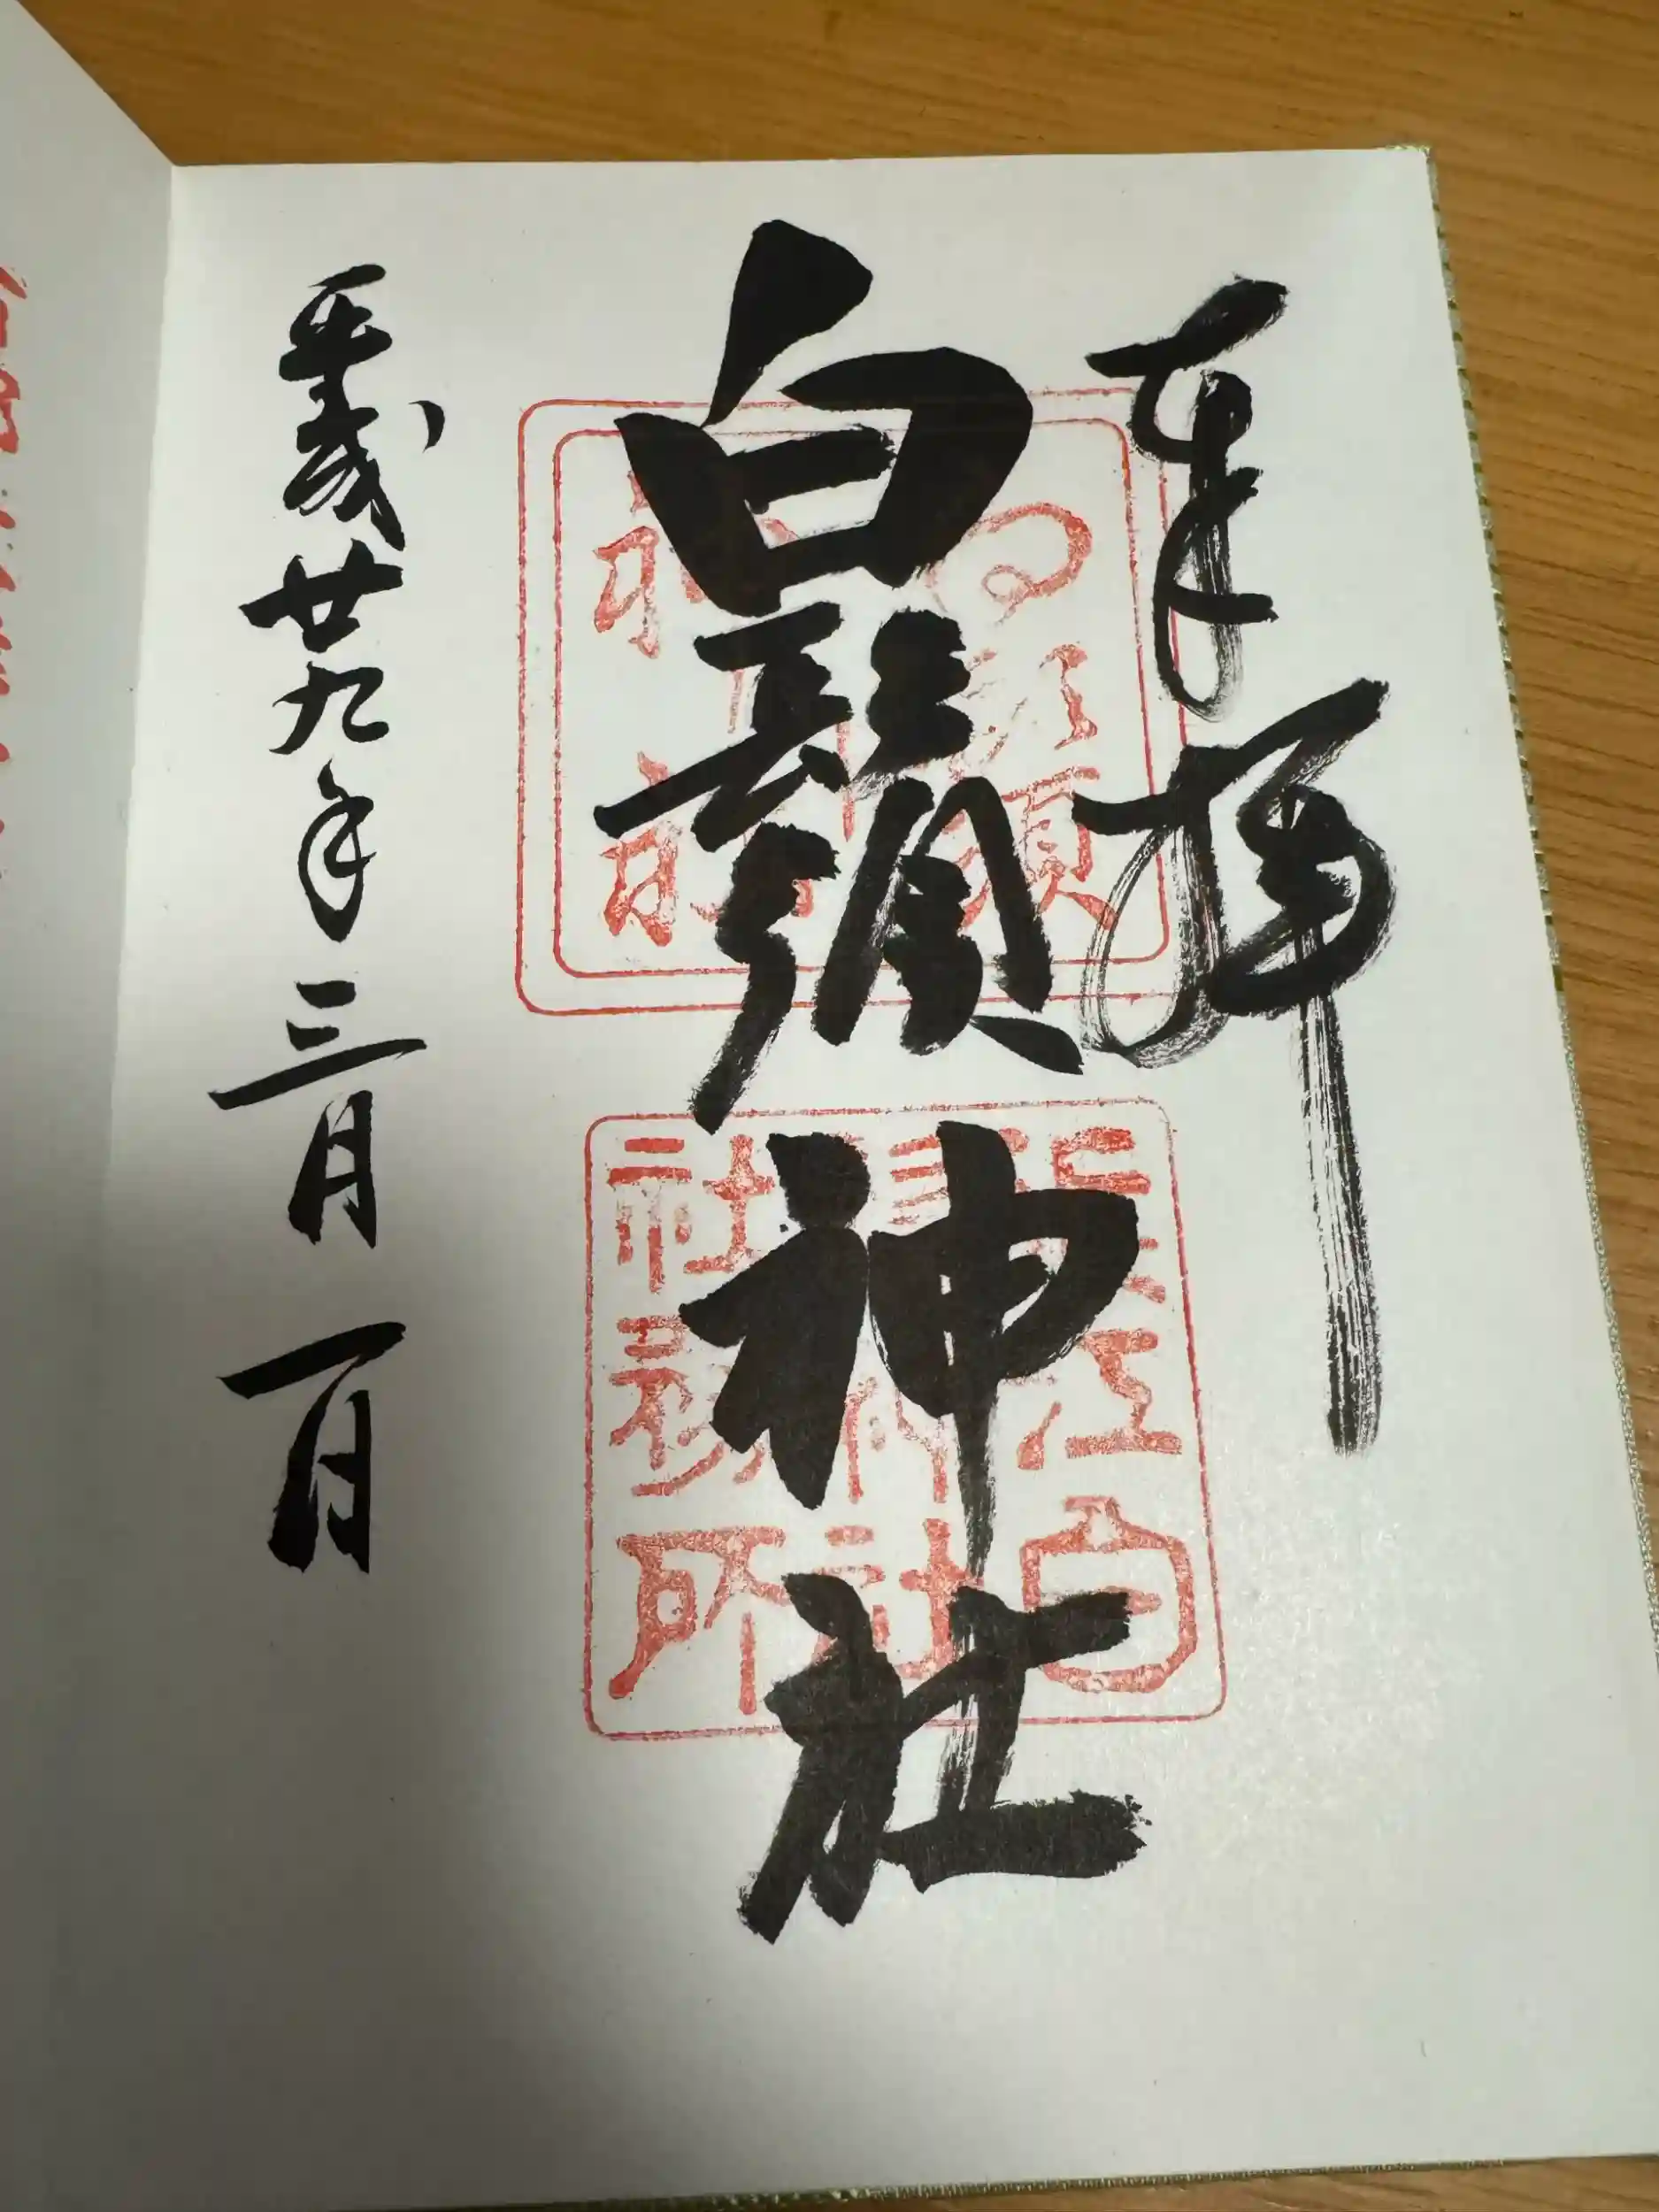 奉拝
白鬚神社
近江白
鬚神社
社務所
平成廿九年三月一日